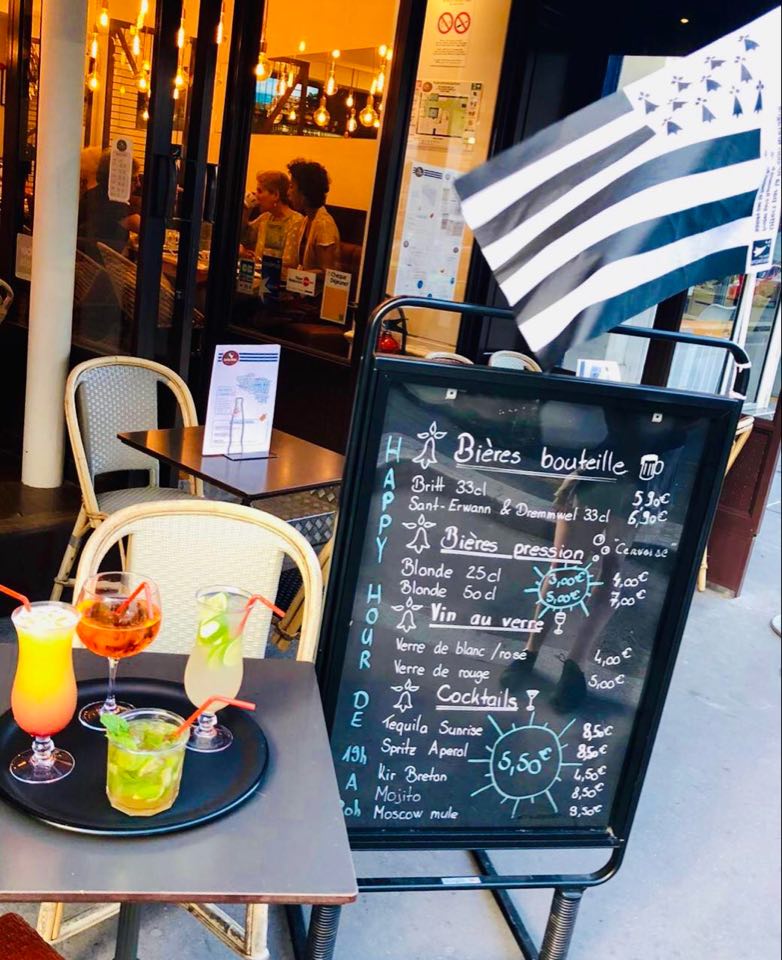 HAPPY HOUR DE 19h A 20h
Bières bouteille
Britt 33cl 5,90€
Sant-Erwann & Dremmwel 33cl 6,90€
Bières pression Cervoise
Blonde 25cl 3,00€ 4,00€
Blonde 50cl 5,00€ 7,00€
Vin au verre
Verre de blanc/rosé 4,00€
Verre de rouge 5,00€
Cocktails
Tequila Sunrise 8,50€
Spritz Aperol 8,50€
5,50€
Kir Breton 4,50€
Mojito 8,50€
Moscow mule 9,50€